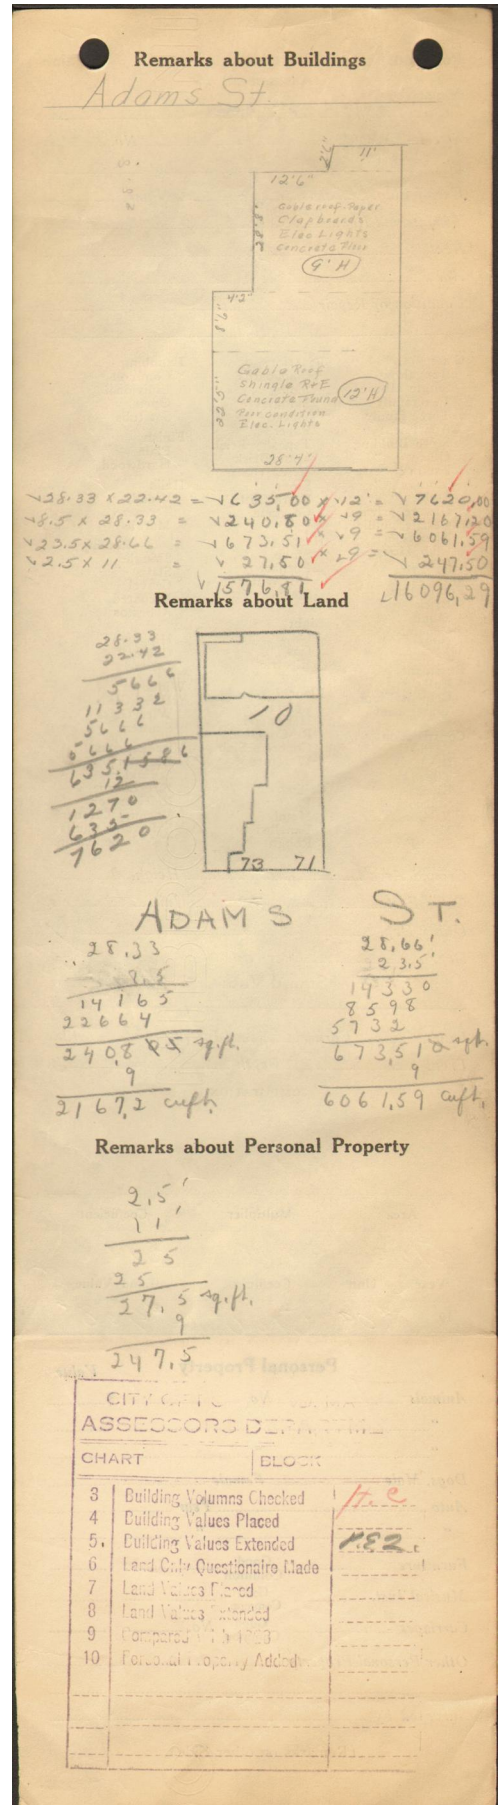 Remarks about Buildings
Adams St.
11'
12'6"
Gable roof-Paper
Clapboards
Elec. Lights
Concrete Floor
9'H
4'2"
8'6"
Gable Roof
Shingle
Concrete Found
12'H
Poor condition
Elec. Lights
28'4"
28.33 x 22.42 = 635,00 x 12 = 7620,00
8.5 x 28.33 = 240,80 x 9 = 2167,20
23.5 x 28.66 = 673,51 x 9 = 6061,59
2.5 x 11 = 27,50 x 9 = 247,50
1576,81 16096,29
Remarks about Land
28.33
22.42
5666
11332
5666
5666
635,1586
12
1270
635
7620
10
73 71
ADAMS ST.
28,33
8.5
14165
22664
240,805 sq.ft.
9
2167,2 cuft.
28,66'
23,5'
14330
8598
5732
673,510 sqft.
9
6061,59 cuft.
Remarks about Personal Property
2,5'
11'
25
25
27,5 sq.ft.
9
247,5
CITY OF
ASSESSORS
CHART BLOCK
3 Building Volumns Checked H.C
4 Building Values Placed
5. Building Values Extended
6 Land Only Questionaire Made
7 Land Values Placed
8 Land Values Extended
9 Compared
10 Personal Property Added